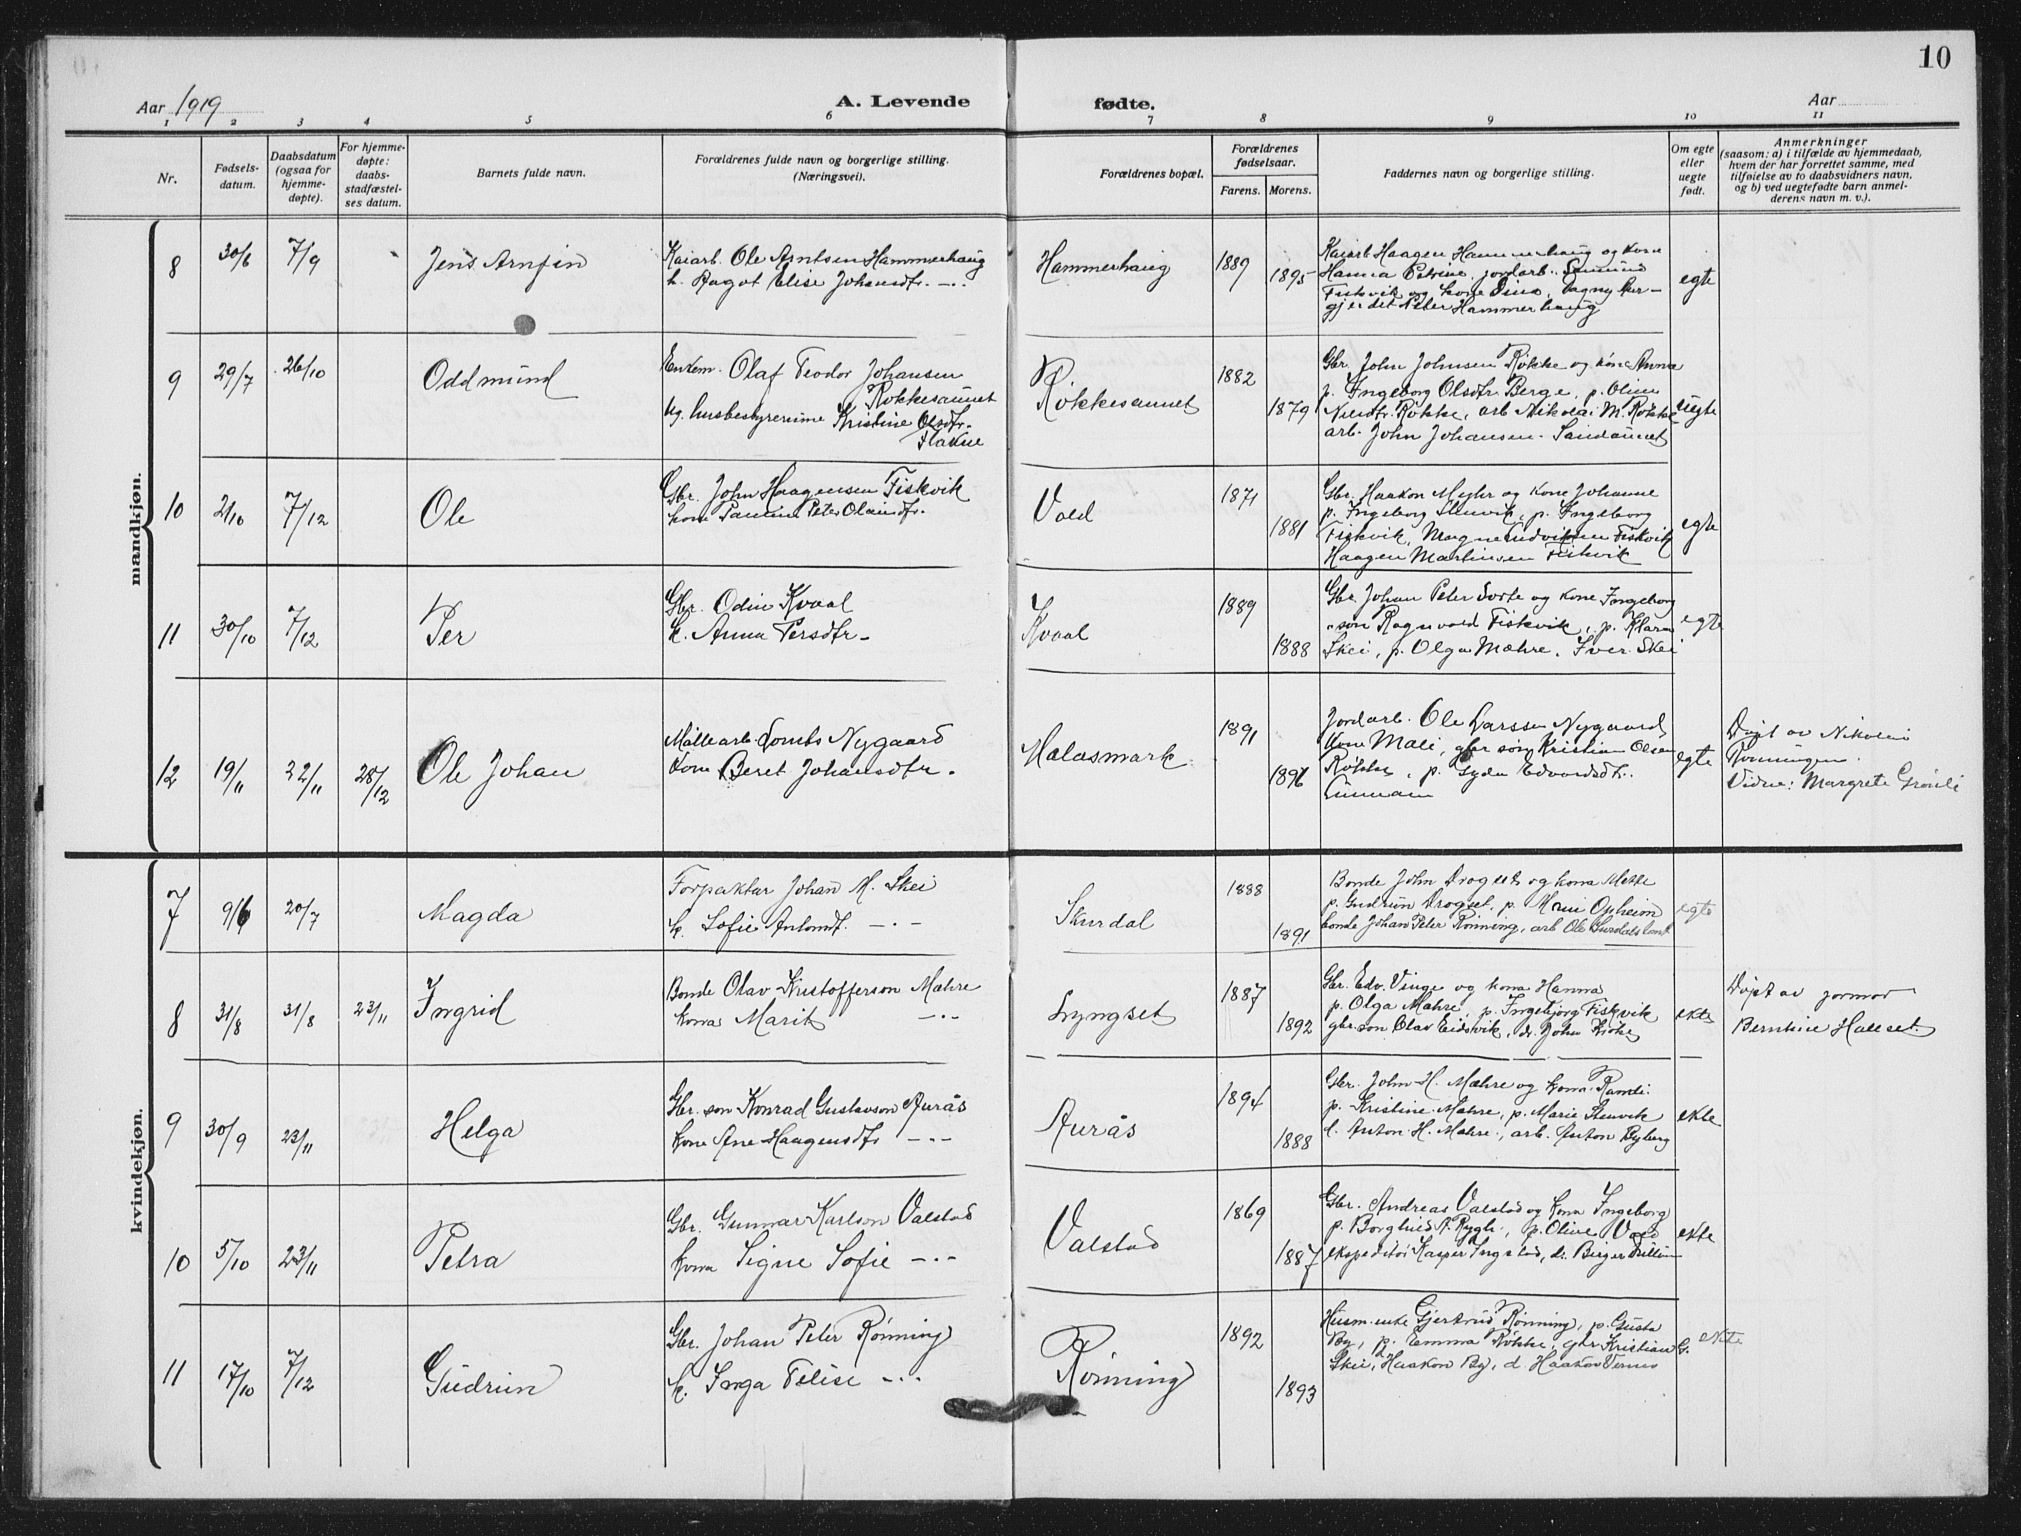 10
Aar 1919
A. Levende fødte.
Aar
1 2 3 4 5 6 7 8 9 10 11
Nr.
Fødsels-
datum.
Daabsdatum
(ogsaa for
hjemme-
døpte).
For hjemme-
døpte:
daabs-
stadfæstel-
ses datum.
Barnets fulde navn.
Forældrenes fulde navn og borgerlige stilling.
(Næringsvei).
Forældrenes bopæl.
Forældrenes
fødselsaar.
Farens. Morens.
Faddernes navn og borgerlige stilling.
Om egte
eller
uegte
født.
Anmerkninger
(saasom: a) i tilfælde av hjemmedaab,
hvem der har forrettet samme, med
tilføielse av to daabsvidners navn,
og b) ved uegtefødte barn anmel-
derens navn m. v.).
mandkjøn.
8 30/6 7/9 Jens Arnfin
Kaiarb. Ole Arntsen Hammerhaug
k. Ragot Elise Johansdtr. -"-
Hammerhaug 1889 1895
Kaiarb Haagen Hammerhaug og kone
Hanna Petrine, jordarb.
Fiskvik og kone
gjerdet Peter Hammerhaug
egte
9 29/7 26/10 Oddmund
Enkem. Olaf Teodor Johansen
Røkkesaunet
ug. husbestyrerinne Kristine Olsdtr.
Flakne
Røkkesaunet 1882 1879
Gbr. John Johnsen Røkke og kone Anna
p. Ingeborg Olsdtr. Berge, p. Oline
Nilsdtr. Røkke, arb Nikolai M. Røkke
arb. John Johansen Sandaunet
uegte
10 2/10 7/12 Ole
Gbr. John Haagensen Fiskvik
kone Olausdtr.
Vold 1871 1881
Gbr. Haakon Myhr og kone Johanne
p. Ingeborg Stenvik, p. Ingeborg
Fiskvik, Magne Ludviksen Fiskvik
Haagen Martinsen Fiskvik
egte
11 30/10 7/12 Per
Gbr. Odin Kvaal
k. Anna Persdtr-
Kvaal 1889 1888
Gbr. Johan Peter og kone Ingeborg
-søn Ragnvald Fiskvik, p. Klara
Skei, p. Olga Mæhre, Iver Skei
egte
12 19/11 22/11 28/12 Ole Johan
Møllearb. Nygaard
kone Beret Johansdtr.
Malasmark 1891 1896
Jordarb. Ole Larssen Nygaard
kone Mali, gbr søn Kristian Olsen
Røkke, p. Edvardsdtr.
egte
Døpt av Nikolai
Rønningen.
Vidne: Margrete Grønli
kvindekjøn.
7 9/6 20/7 Magda
Forpaktar Johan M. Skei
k. Sofie Antonsdt. -"-
Skurdal 1888 1891
Bonde John Drogset og kona Mette
p. Gudrun Drogset, p. Marie Opheim
bonde Johan Peter Rønning, arb Ole
egte
8 31/8 31/8 23/11 Ingrid
Bonde Olav Kristofferson Mæhre
kona Marit -"-
Lyngset 1887 1892
Gbr. Edv. Vinge og kona Hanna
p. Olga Mæhre, p. Ingebjørg Fiskvik
gbr.son Olav Eidsvik, d. John Krokes
ekte
Døpt av jormor
Berntine Halset
9 30/9 23/11 Helga
Gbr. son Konrad Gustavson Aurås
kone Ane Haagensdtr -"-
Aurås 1894 1888
Gbr. John H. Mæhre og kona Randi
p. Kristine Mæhre, p. Marie Stenvik
d. Anton H. Mæhre, arb. Anton Byberg
ekte
10 5/10 23/11 Petra
Gbr. Gunnar Karlson Valstad
kona Signe Sofie -"-
Valstad 1869 1887
Gbr. Andreas Valstad og kona Ingeborg
p. Borghild A. Rygh, p. Oline Vold
ekspeditør Kasper Ingstad, d. Birger
ekte
11 17/10 7/12 Gudrun
Gbr. Johan Peter Rønning
k. Inga Elise -"-
Rønning 1892 1893
Husm.enke Gjertrud Rønning, p. Gusta
By, p. Emma Røkke, gbr Kristian G.
Skei, Haakon By, d. Haakon Vernes
ekte